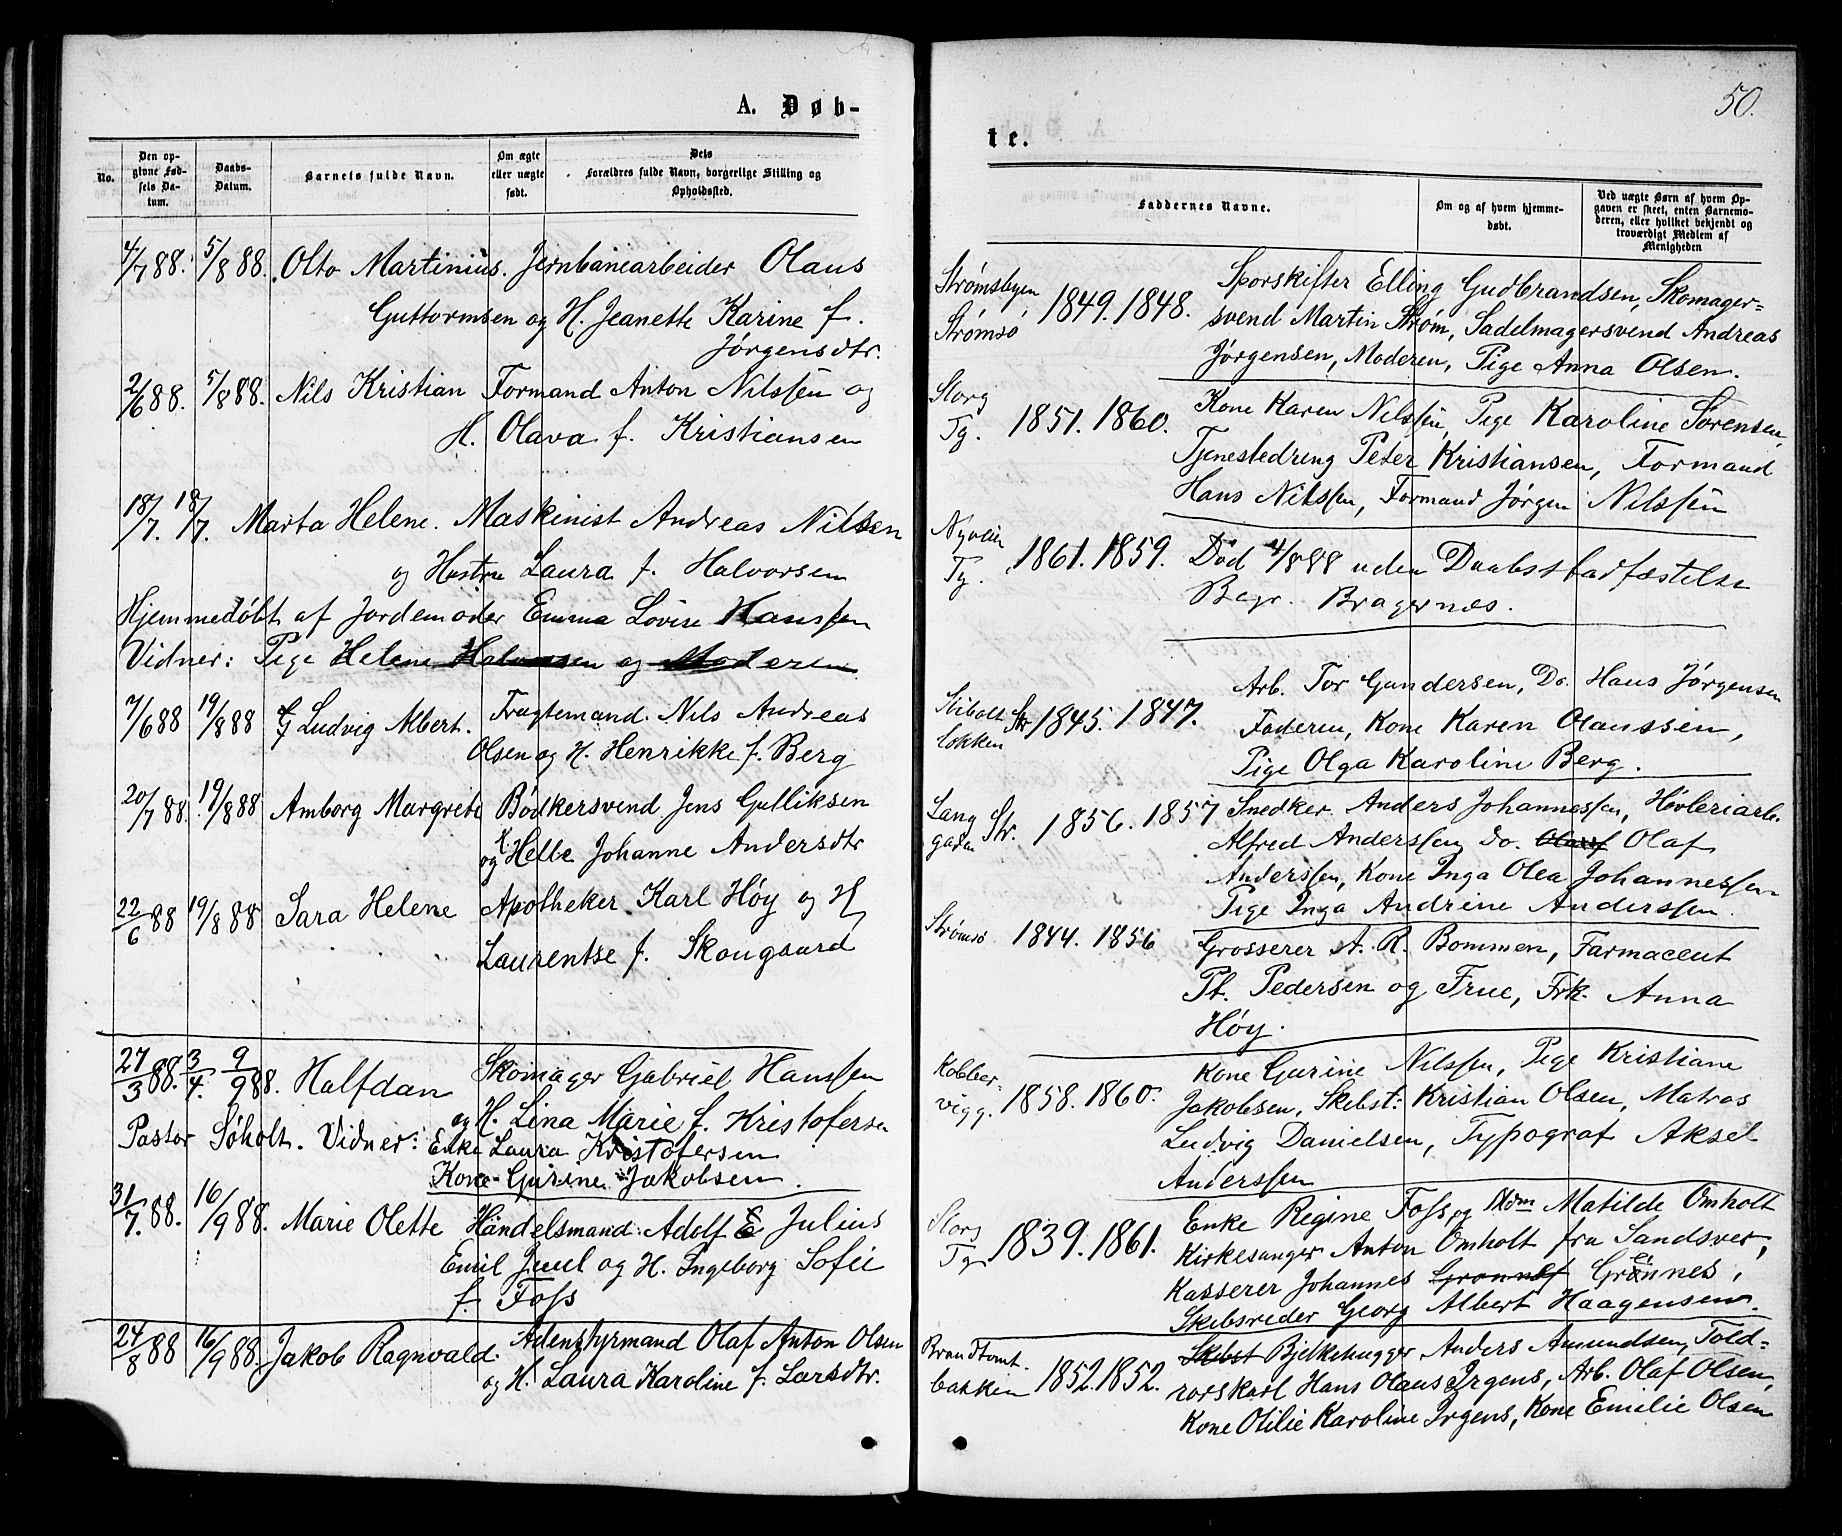 A. Døb-
No.
Den op-
givne Fød-
sels Da-
tum.
Daabs-
Datum.
Barnets fulde Navn.
Om ægte
eller uægte
født.
Dets
Forældres fulde Navn, borgerlige Stilling og
Opholdssted.
4/7 88. 5/8 88. Olto Martinius. Jernbanearbeider Olaus
Guttormsen og H. Jeanette Karine f.
Jørgensdtr.
2/6 88. 5/8 88. Nils Kristian Formand Anton Nilssen og
H. Olava f. Kristiansen
18/7. 18/7. Marta Helene. Maskinist Andreas Nilsen
og Hustru Laura f. Halvorsen
Hjemmedøbt af Jordemoder Emma Lovise Hanssen
Vidner: Pige Helene Halvorsen og Moderen
7/6 88 19/8 88 Ludvig Albert. Fragtemand. Nils Andreas
Olsen og H. Henrikke f. Berg
20/7 88. 19/8 88 Amborg Margrete Bødkersvend Jens Gulliksen
og H. Helle Johanne Andersdtr
22/6 88 19/8 88 Sara Helene Apotheker Karl Høy og H
Laurentse f. Skougaard
27/3 88. 3/4. 9/9 88. Halfdan Skomager Gabriel Hanssen
og H. Lina Marie f. Kristofersen
Pastor Søholt. Vidner: Enke Laura Kristofersen
Kone Gurine Jakobsen.
31/7. 88. 16/9 88. Marie Olette Handelsmand Adolf E Julius
Emil Juul og H. Ingeborg Sofie
f. Foss
24/8 88 16/9 88. Jakob Ragnvald. Adenstyrmand Olaf Anton Olsen
og H. Laura Karoline f. Larsdtr.
50.
te.
Faddernes Navne.
Om og af hvem hjemme-
døbt.
Ved uægte Børn af hvem Op-
gaven er skeet, enten Barnemo-
deren, eller hvilket bekjendt og
troværdigt Medlem af
Menigheden
Strømsbyen,
Strømsø
1849. 1848.
Sporskifter Elling Gudbrandsen, Skomager-
svend Martin Strøm, Sadelmagersvend Andreas
Jørgensen, Moderen, Pige Anna Olsen.
Storg
Tg.
1851. 1860.
Kone Karen Nilssen, Pige Karoline Sørensen,
Tjenestedreng Peter Kristiansen, Formand
Hans Nilssen, Formand Jørgen Nilssen
Nyveien
Tg.
1861. 1859.
Død 4/8 88 uden Daabsstadfæstelse
Begr. Bragernæs.
løkken
Str.
1845. 1847.
Arb. Tor Gundersen, Do. Hans Jørgensen
Faderen, Kone Karen Olaussen,
Pige Olga Karoline Berg.
Lang
gaden
Str.
1856. 1857
Snedker Anders Johannessen, Høvleriarb.
Alfred Anderssen Do. Olauf Olaf
Anderssen, Kone Inga Olea Johannessen
Pige Inga Andrine Anderssen.
Strømsø
1844. 1856
Grosserer A. R. Bommen, Farmaceut
Pt. Pedersen og Frue, Frk. Anna
Høy.
Kobber-
vigg.
1858. 1860.
Kone Gurine Nilssen, Pige Kristiane
Jakobsen, Skibst: Kristian Olsen, Matros
Ludvig Danielsen, Typograf Aksel
Anderssen
Storg
Tg
1839. 1861.
Enke Regine Foss, og Mdm Matilde Omholt
Kirkesanger Anton Omholt fra Sandsver,
Kasserer Johannes Gronnes,
Skibsreder Georg Albert Haagensen.
Brandtomt.
bakken
1852. 1852.
Skibst Bjelkehugger Anders Amundsen, Told-
rorskarl Hans Olaus Irgens, Arb. Olaf Olsen,
Kone Otilie Karoline Irgens, Kone Emilie Olsen